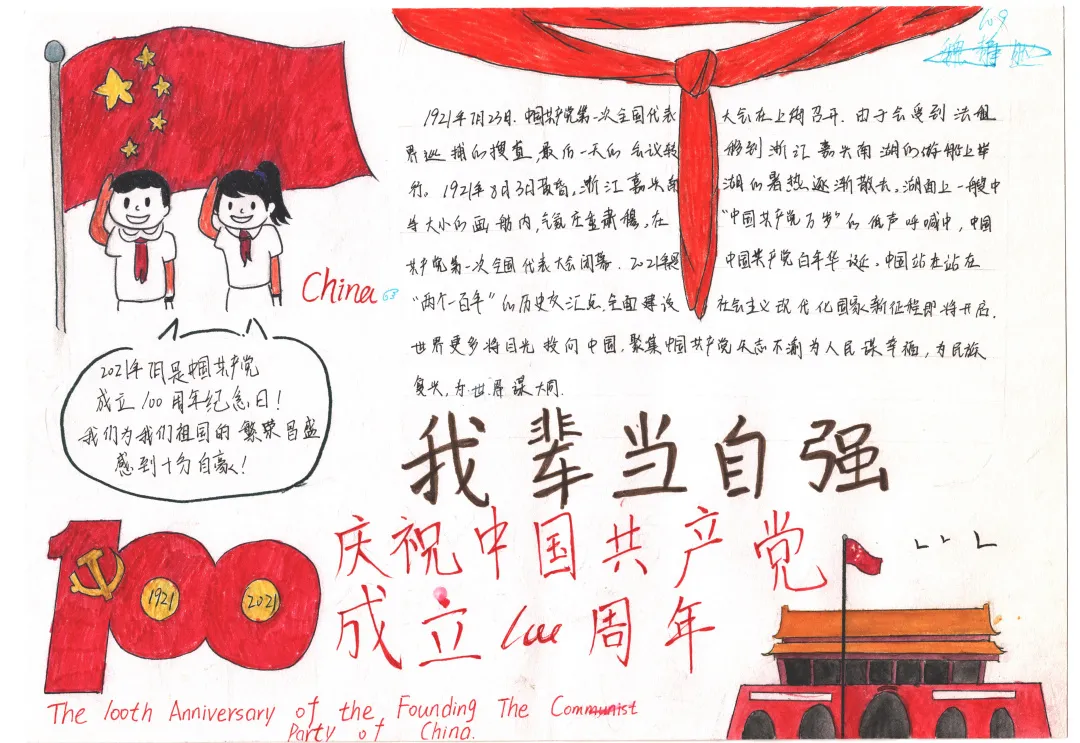 609
1921年7月23日.中国共产党第一次全国代表大会在上海召开.由于会受到法租
界巡捕的搜查,最后一天的会议转移到浙江嘉兴南湖的游船上举
行。1921年8月3日黄昏,浙江嘉兴南湖的暑热逐渐散去,湖面上一艘中
等大小的画舫内,气氛庄重肃穆,在“中国共产党万岁”的低声呼喊中,中国
共产党第一次全国代表大会闭幕.2021年中国共产党百年华诞,中国站在站在
“两个一百年”的历史交汇点,全面建设社会主义现代化国家新征程即将开启.
世界更多将目光投向中国,聚集中国共产党矢志不渝为人民谋幸福,为民族
复兴,为世界谋大同.
China
2021年7月是中国共产党
成立100周年纪念日!
我们为我们祖国的繁荣昌盛
感到十分自豪!
我辈当自强
庆祝中国共产党
成立100周年
100
1921
2021
The 100th Anniversary of the Founding The Communist
Party of China.